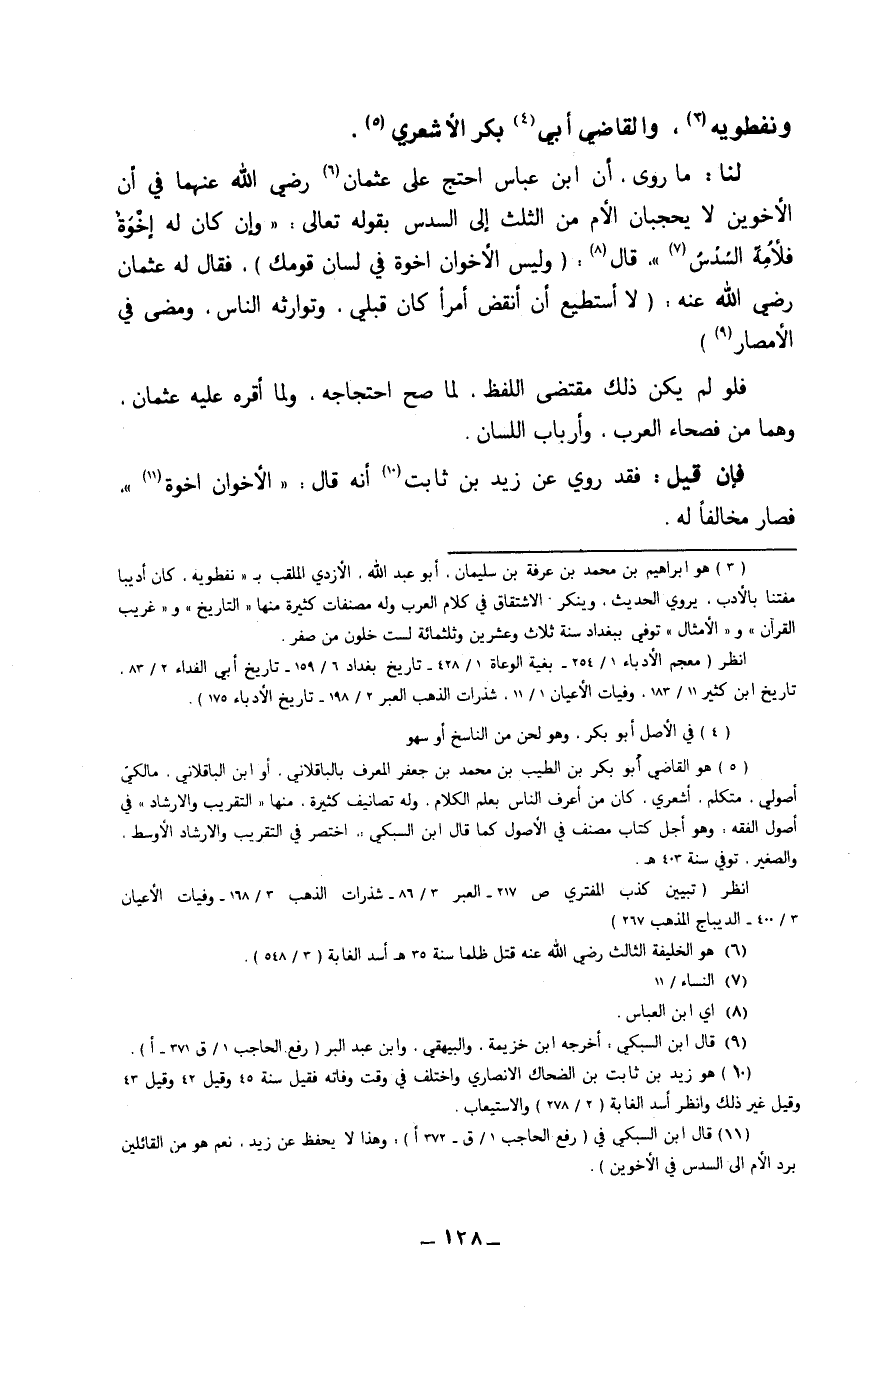 ونفطويه(٣) ، والقاضي أبي(٤) بكر الأشعري(٥) .
لنا : ما روى ، أن ابن عباس احتج على عثمان(٦) رضي الله عنهما في أن
الأخوين لا يحجبان الأم من الثلث إلى السدس بقوله تعالى : « وإن كان له إخْوَةٌ
فلأُمِهِّ السُدُسُ(٧) »، قال(٨) : ( وليس الأخوان اخوة في لسان قومك ) ، فقال له عثمان
رضي الله عنه : ( لا أستطيع أن أنقض أمراً كان قبلي ، وتوارثه الناس ، ومضى في
الأمصار(٩) )
فلو لم يكن ذلك مقتضى اللفظ ، لما صح احتجاجه ، ولما أقره عليه عثمان ،
وهما من فصحاء العرب ، وأرباب اللسان .
فإن قيل : فقد روي عن زيد بن ثابت(١٠) أنه قال : « الأخوان اخوة(١١) »،
فصار مخالفاً له .
( ٣ ) هو ابراهيم بن محمد بن عرفة بن سليمان ، أبو عبد الله ، الأزدي الملقب بـ « نفطويه ، كان أديبا
مفتنا بالأدب ، يروي الحديث ، وينكر الاشتقاق في كلام العرب وله مصنفات كثيرة منها « التاريخ » و « غريب
القرآن » و « الأمثال » توفي ببغداد سنة ثلاث وعشرين وثلثمائة لست خلون من صفر .
انظر ( معجم الأدباء ١ / ٢٥٤ ـ بغية الوعاة ١ / ٤٢٨ ـ تاريخ بغداد ٦ / ١٥٩ ـ تاريخ أبي الفداء ٢ / ٨٣ ،
تاريخ ابن كثير ١١ / ١٨٣ ، وفيات الأعيان ١ / ١١ ، شذرات الذهب العبر ٢ / ١٩٨ ـ تاريخ الأدباء ١٧٥ ) .
( ٤ ) في الأصل أبو بكر ، وهو لحن من الناسخ أو سهو
( ٥ ) هو القاضي أبو بكر بن الطيب بن محمد بن جعفر المعرف بالباقلاني ، أو ابن الباقلاني ، مالكيّ
أصولي ، متكلم ، أشعري ، كان من أعرف الناس بعلم الكلام ، وله تصانيف كثيرة ، منها « التقريب والارشاد » في
أصول الفقه : وهو أجل كتاب مصنف في الأصول كما قال ابن السبكي ، اختصر في التقريب والارشاد الأوسط ،
والصغير ، توفي سنة ٤٠٣ هـ .
انظر ( تبيين كذب المفتري ص ٢١٧ ـ العبر ٣ / ٨٦ ـ شذرات الذهب ٣ / ١٦٨ ـ وفيات الأعيان
٣ / ٤٠٠ ـ الديباج المذهب ٢٦٧ )
(٦) هو الخليفة الثالث رضي الله عنه قتل ظلما سنة ٣٥ هـ أسد الغابة ( ٣ / ٥٤٨ ) .
(٧) النساء / ١١
(٨) اي ابن العباس .
(٩) قال ابن السبكي : أخرجه ابن خزيمة ، والبيهقي ، وابن عبد البر ( رفع الحاجب ١ / ق ٣٧١ ـ أ ) .
(١٠) هو زيد بن ثابت بن الضحاك الانصاري واختلف في وقت وفاته فقيل سنة ٤٥ وقيل ٤٢ وقيل ٤٣
وقيل غير ذلك وانظر أسد الغابة ( ٢ / ٢٧٨ ) والاستيعاب .
(١١) قال ابن السبكي في ( رفع الحاجب ١ / ق ـ ٣٧٢ أ ) : وهذا لا يحفظ عن زيد ، نعم هو من القائلين
برد الأم الى السدس في الأخوين ) .
ـ ١٢٨ ـ